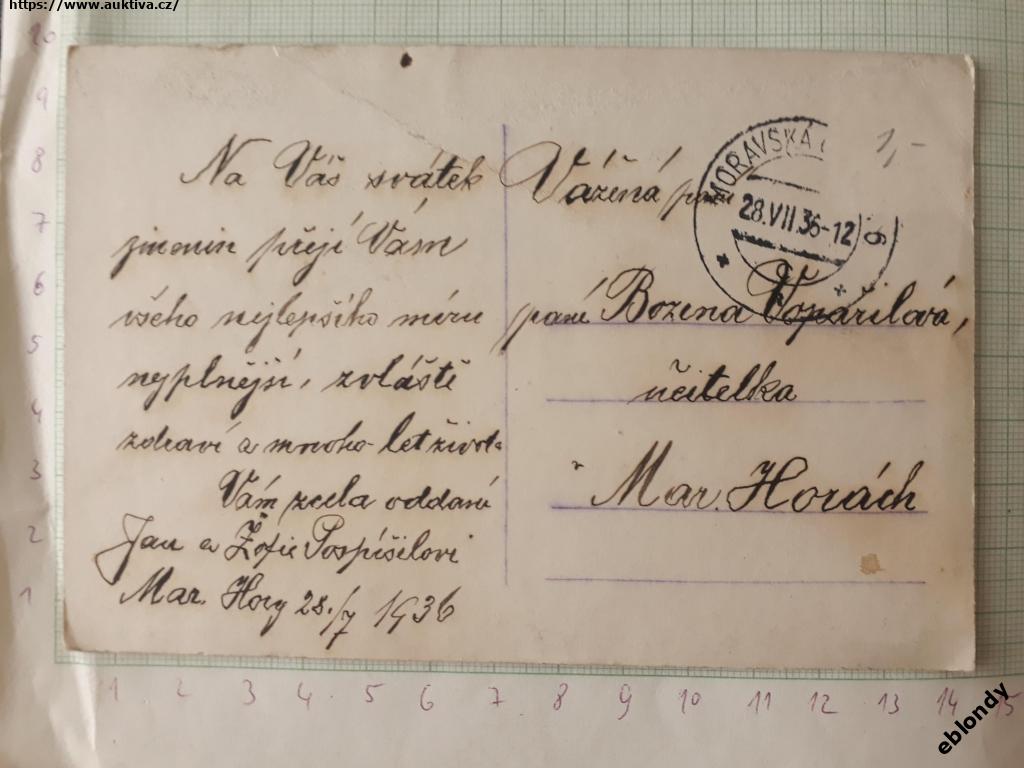 https://www.auktiva.cz/
Na Váš svátek
jmenin přeji Vám
všeho nejlepšího míru
nyplnější, zvláště
zdraví a mnoho let života
Vám zcela oddaní
Jan a Žofie Pospíšilovi
Mar. Hory 28./7 1936
Vážená paní
paní Božena Vopařilová,
učitelka
Mar. Horách
MORAVSKÁ
28.VII.36-12
1,-
10
9
8
7
6
5
4
3
2
1
1 2 3 4 5 6 7 8 9 10 11 12 13 14 15
eblondy